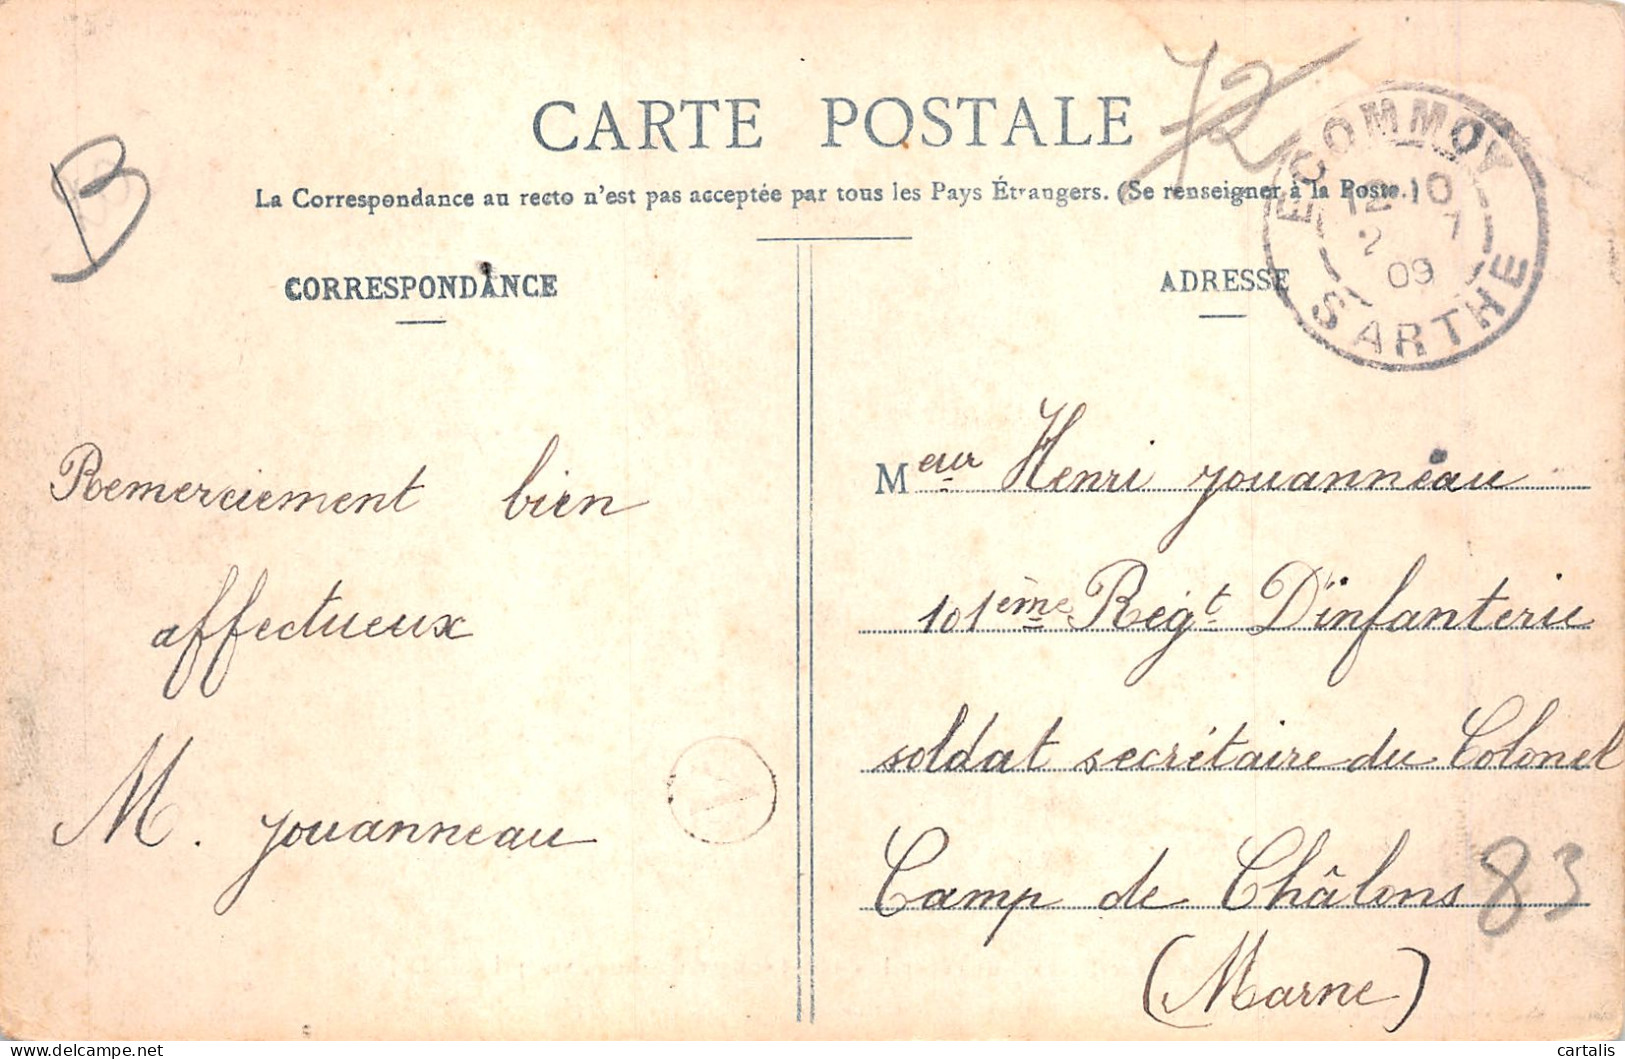 CARTE POSTALE
72
B
La Correspondance au recto n'est pas acceptée par tous les Pays Étrangers. (Se renseigner à la Poste.)
ECOMMOY
12-10
2 7
09
SARTHE
CORRESPONDANCE
Remerciement bien
affectueux
M. Jouanneau
A
ADRESSE
Meur Henri Jouanneau
101ème Régt D'infanterie
soldat secrétaire du Colonel
Camp de Châlons
83
(Marne)
cartalis